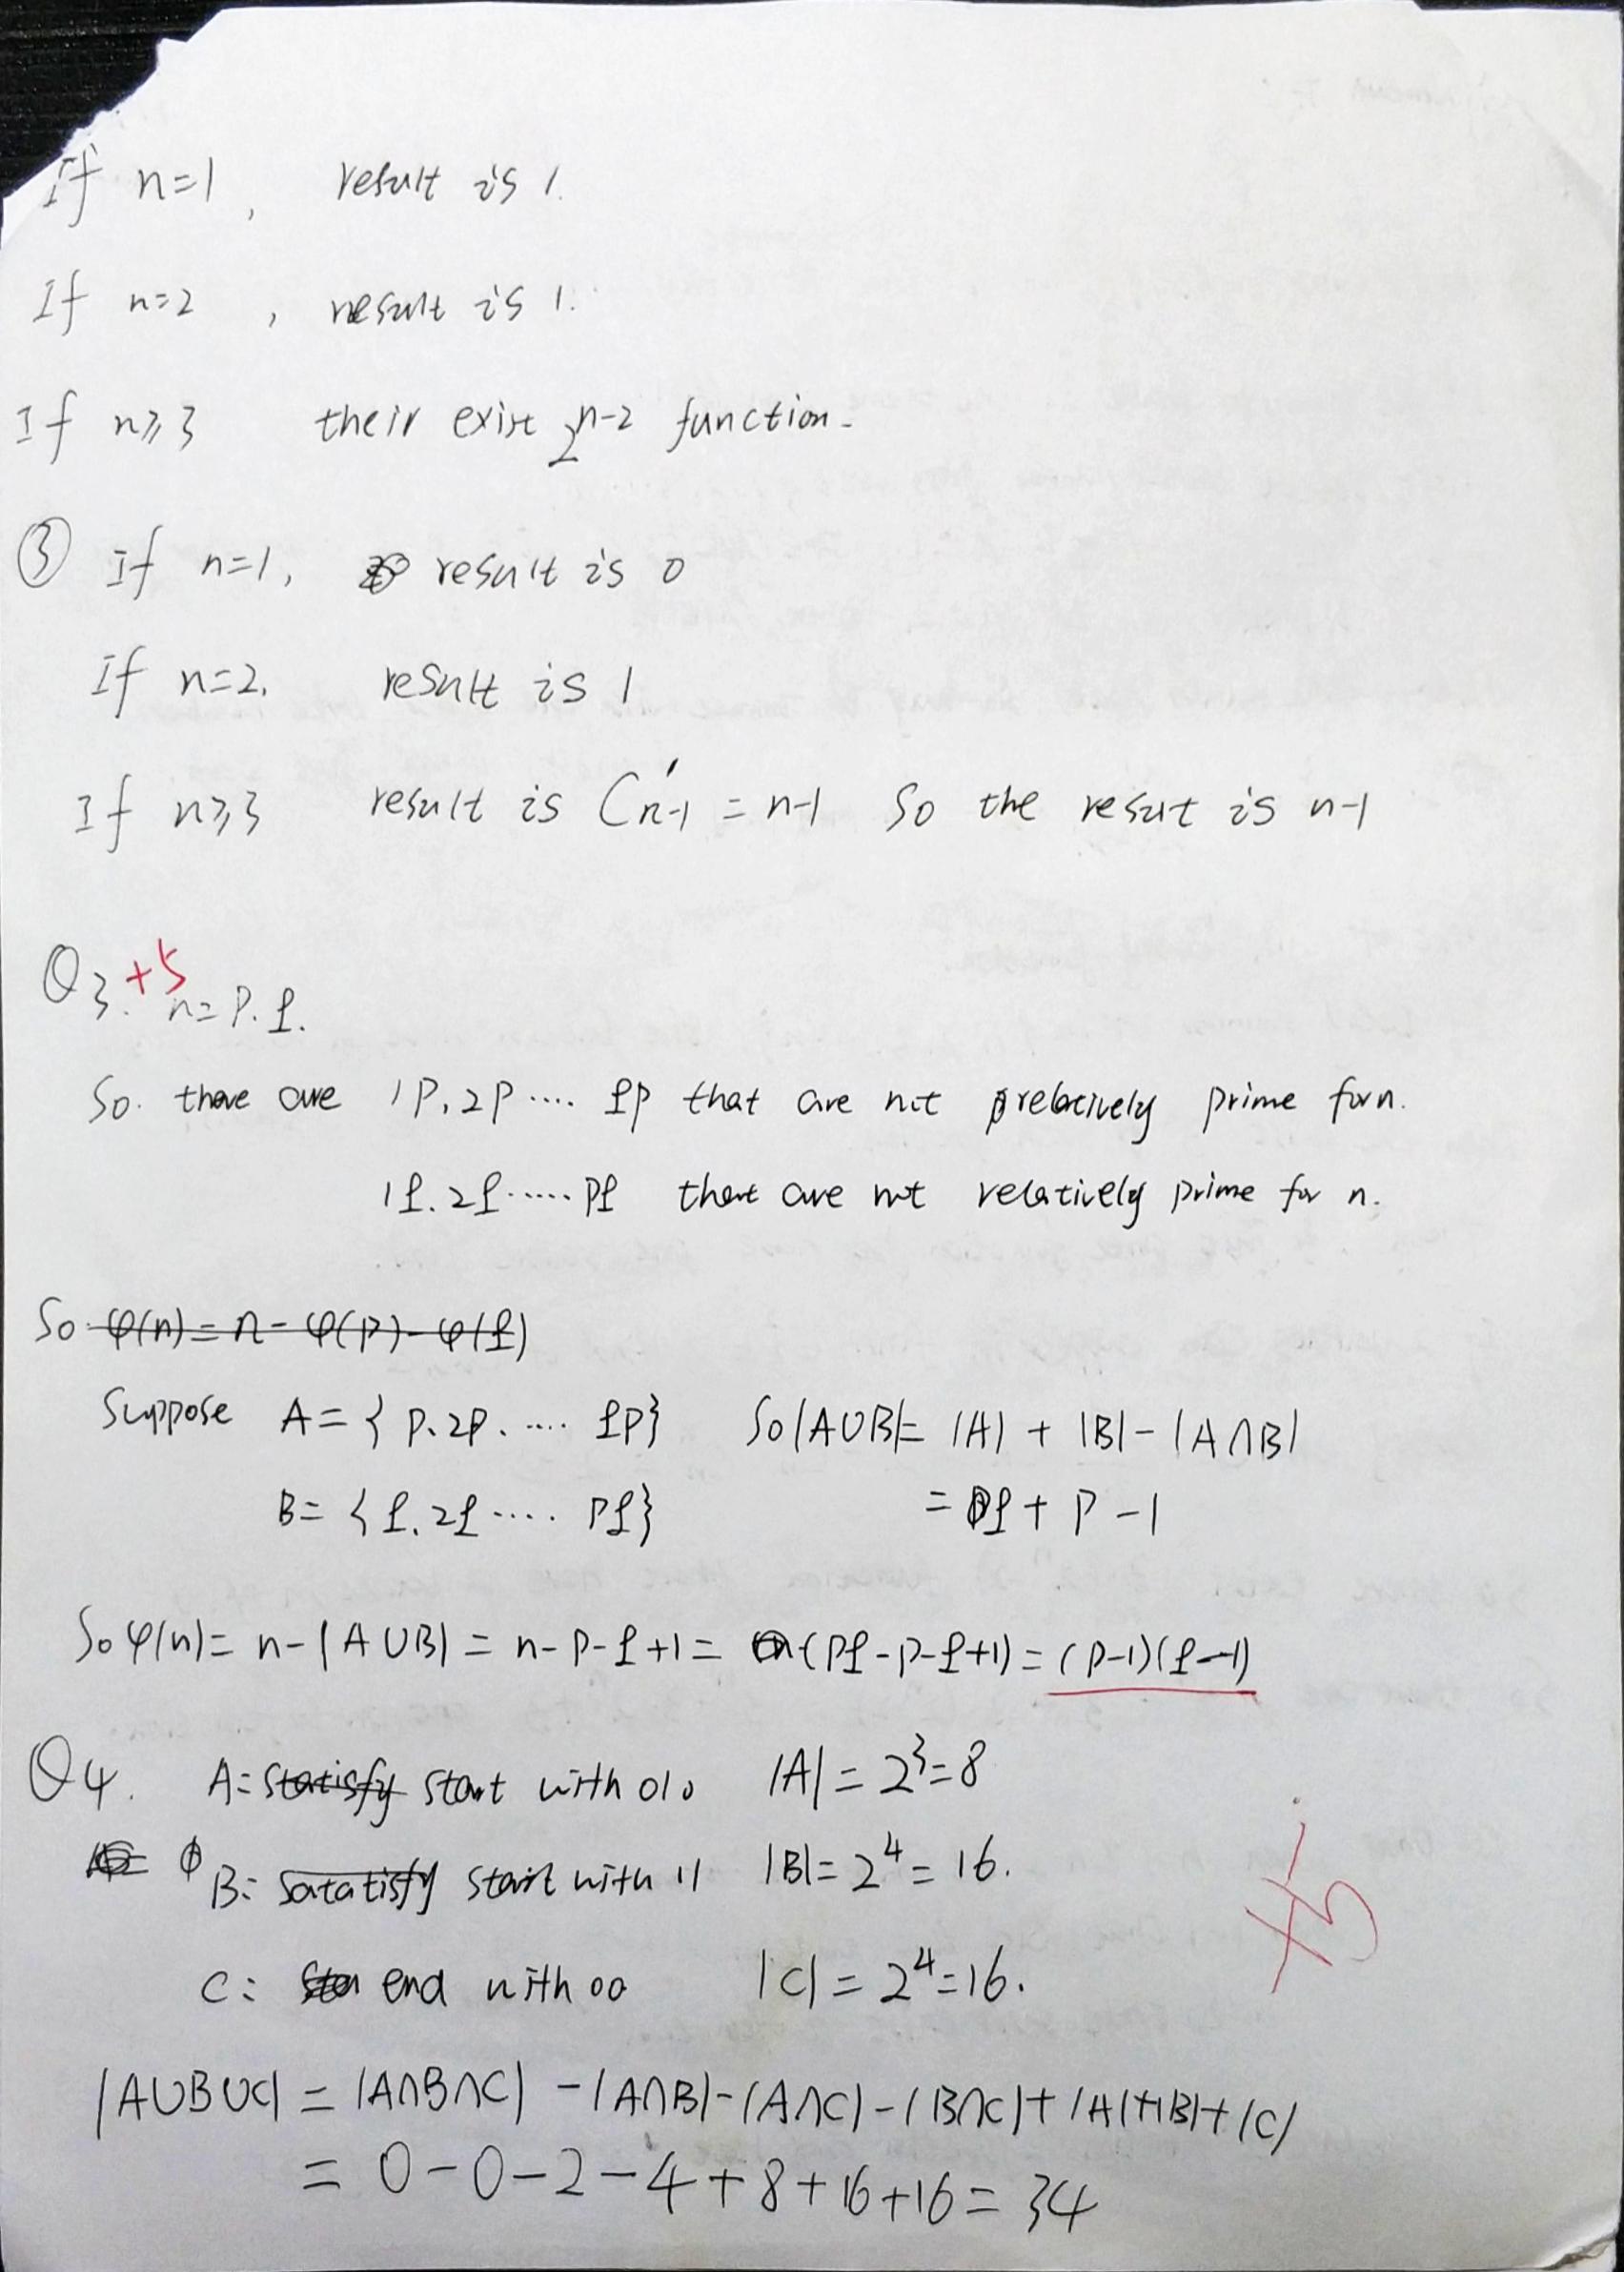 If n=1, result is 1.
If n=2, result is 1.
If n≥3 their exist 2^n-2 function.
③ If n=1, result is 0
If n=2. result is 1
If n≥3 result is C¹n-1 = n-1 So the result is n-1
Q3. +5
n=P.q.
So. there are 1P, 2P .... qp that are not relatively prime for n.
1q. 2q ...... Pq that are not relatively prime for n.
So φ(n) = n - φ(p) - φ(q)
Suppose A = { P. 2P. .... qp} So |A∪B| = |A| + |B| - |A∩B|
B = {q. 2q .... Pq} = q + P - 1
So φ(n) = n - |A∪B| = n - P - q + 1 = (Pq - P - q + 1) = (P-1)(q-1)
Q4. A: Statisfy start with 010 |A| = 2³ = 8
B: Satatistfy start with 11 |B| = 2⁴ = 16.
+5
C: end with 00 |C| = 2⁴ = 16.
|A∪B∪C| = |A∩B∩C| - |A∩B| - |A∩C| - |B∩C| + |A| + |B| + |C|
= 0 - 0 - 2 - 4 + 8 + 16 + 16 = 34